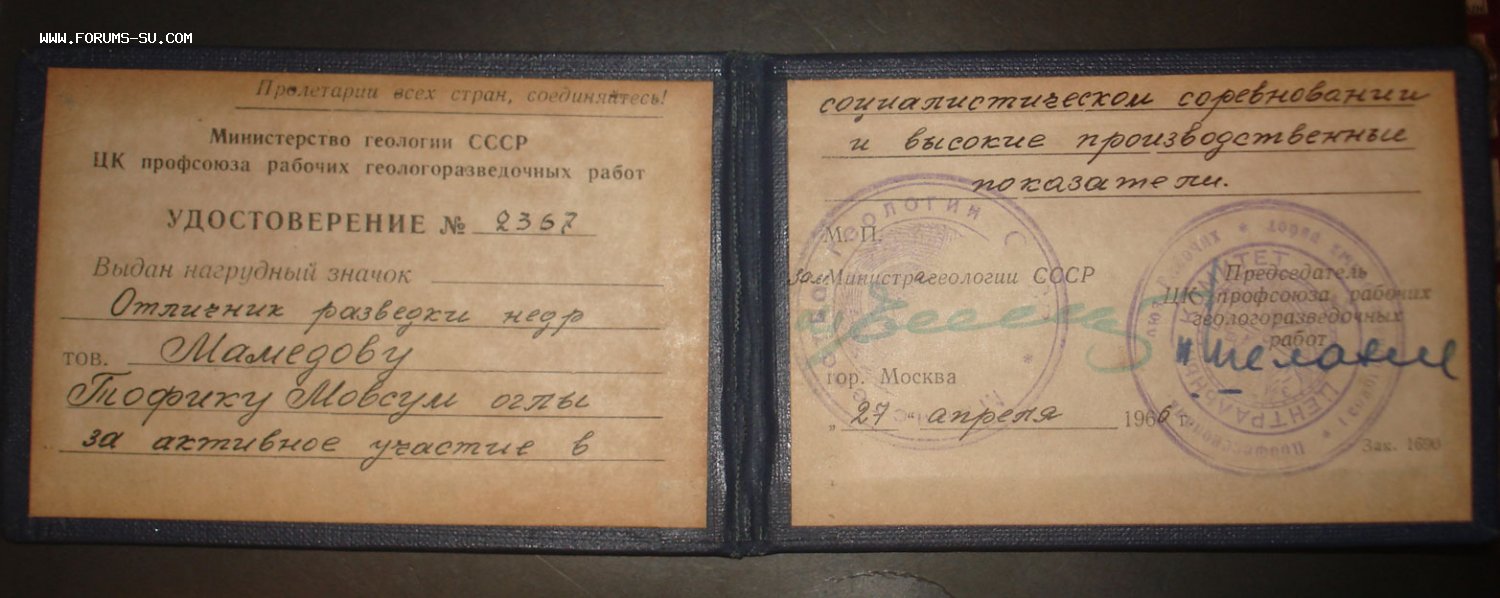 WWW.FORUMS-SU.COM
Пролетарии всех стран, соединяйтесь!
Министерство геологии СССР
ЦК профсоюза рабочих геологоразведочных работ
УДОСТОВЕРЕНИЕ № 2367
Выдан нагрудный значок
Отличник разведки недр
тов. Мамедову
Тофику Мовсум оглы
за активное участие в
социалистическом соревновании
и высокие производственные
показатели.
М. П.
зам Министра геологии СССР
гор. Москва
„27" апреля 1966 г.
Председатель
ЦК профсоюза рабочих
геологоразведочных
работ
Зак. 1690
ГЕОЛОГИИ
ЦЕНТРАЛЬНЫЙ КОМИТЕТ